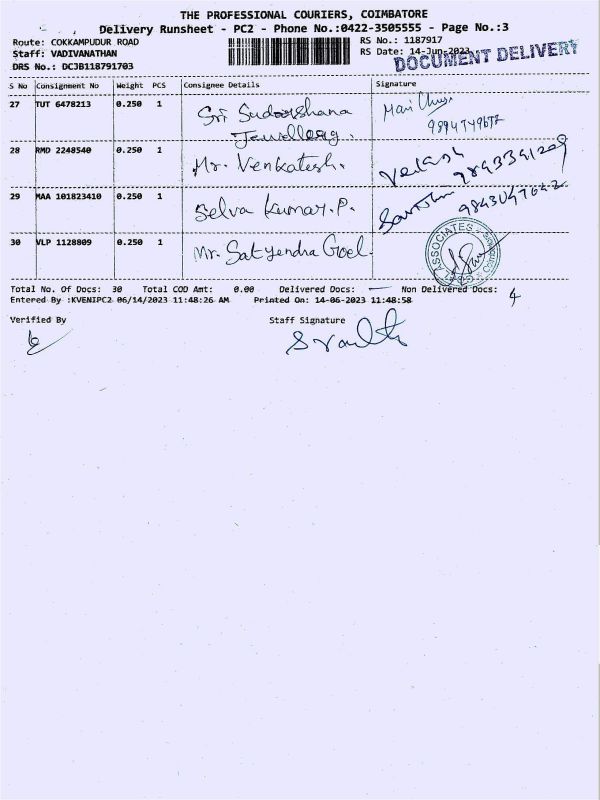 THE PROFESSIONAL COURIERS, COIMBATORE
Delivery Runsheet - PC2 - Phone No.:0422-3505555 - Page No.:3
Route: COKKAMPUDUR ROAD
Staff: VADIVANATHAN
DRS No.: DCJB118791703
RS No.: 1187917
RS Date: 14-Jun-2023
DOCUMENT DELIVERY
S No Consignment No Weight PCS Consignee Details Signature
27 TUT 6478213 0.250 1 Sri Sudarshana
Jewellery.
28 RMD 2248540 0.250 1 Mr. Venkatesh.
29 MAA 101823410 0.250 1 Selva Kumar.P.
30 VLP 1128809 0.250 1 Mr. Satyendra Goel.
ASSOCIATES
Total No. Of Docs: 30 Total COD Amt: 0.00 Delivered Docs: — Non Delivered Docs: 4
Entered By :KVENIPC2 06/14/2023 11:48:26 AM Printed On: 14-06-2023 11:48:58
Verified By Staff Signature